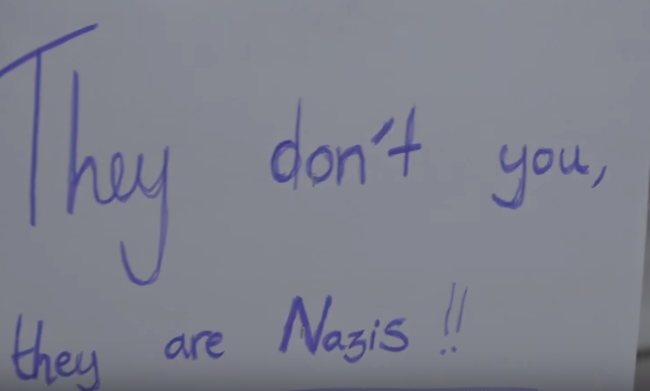 They don't you,
they are Nazis!!